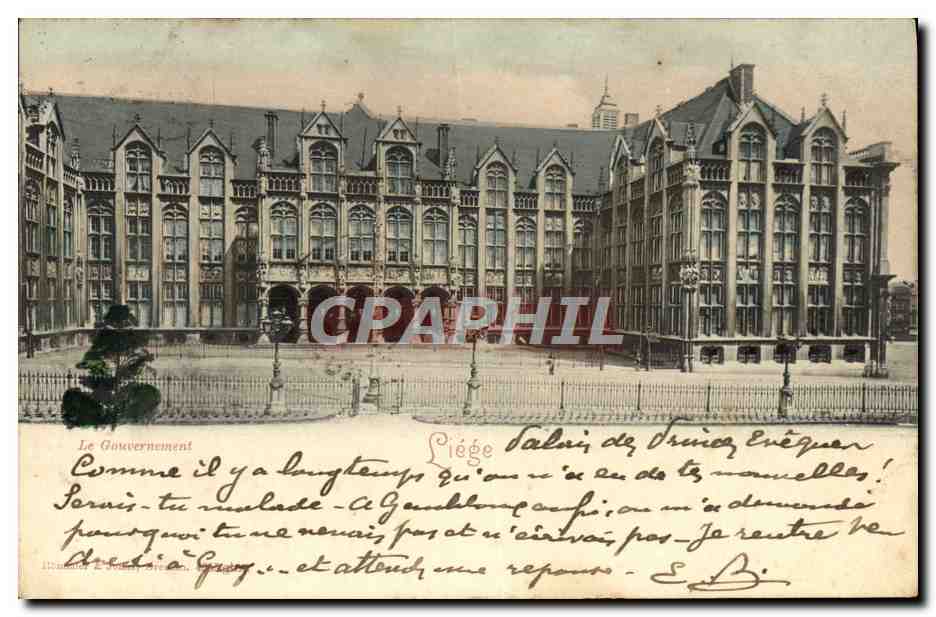 CPARPHIL
Le Gouvernement
Liége Palais des Princes Evêques
Comme il y a longtemps qu'on n'a eu de tes nouvelles!
Serais-tu malade - A Gembloux aussi, on m'a demandé
pourquoi tu ne venais pas et n'écrivais pas - Je rentre ven
dredi à Huy... et attends une réponse - E B.